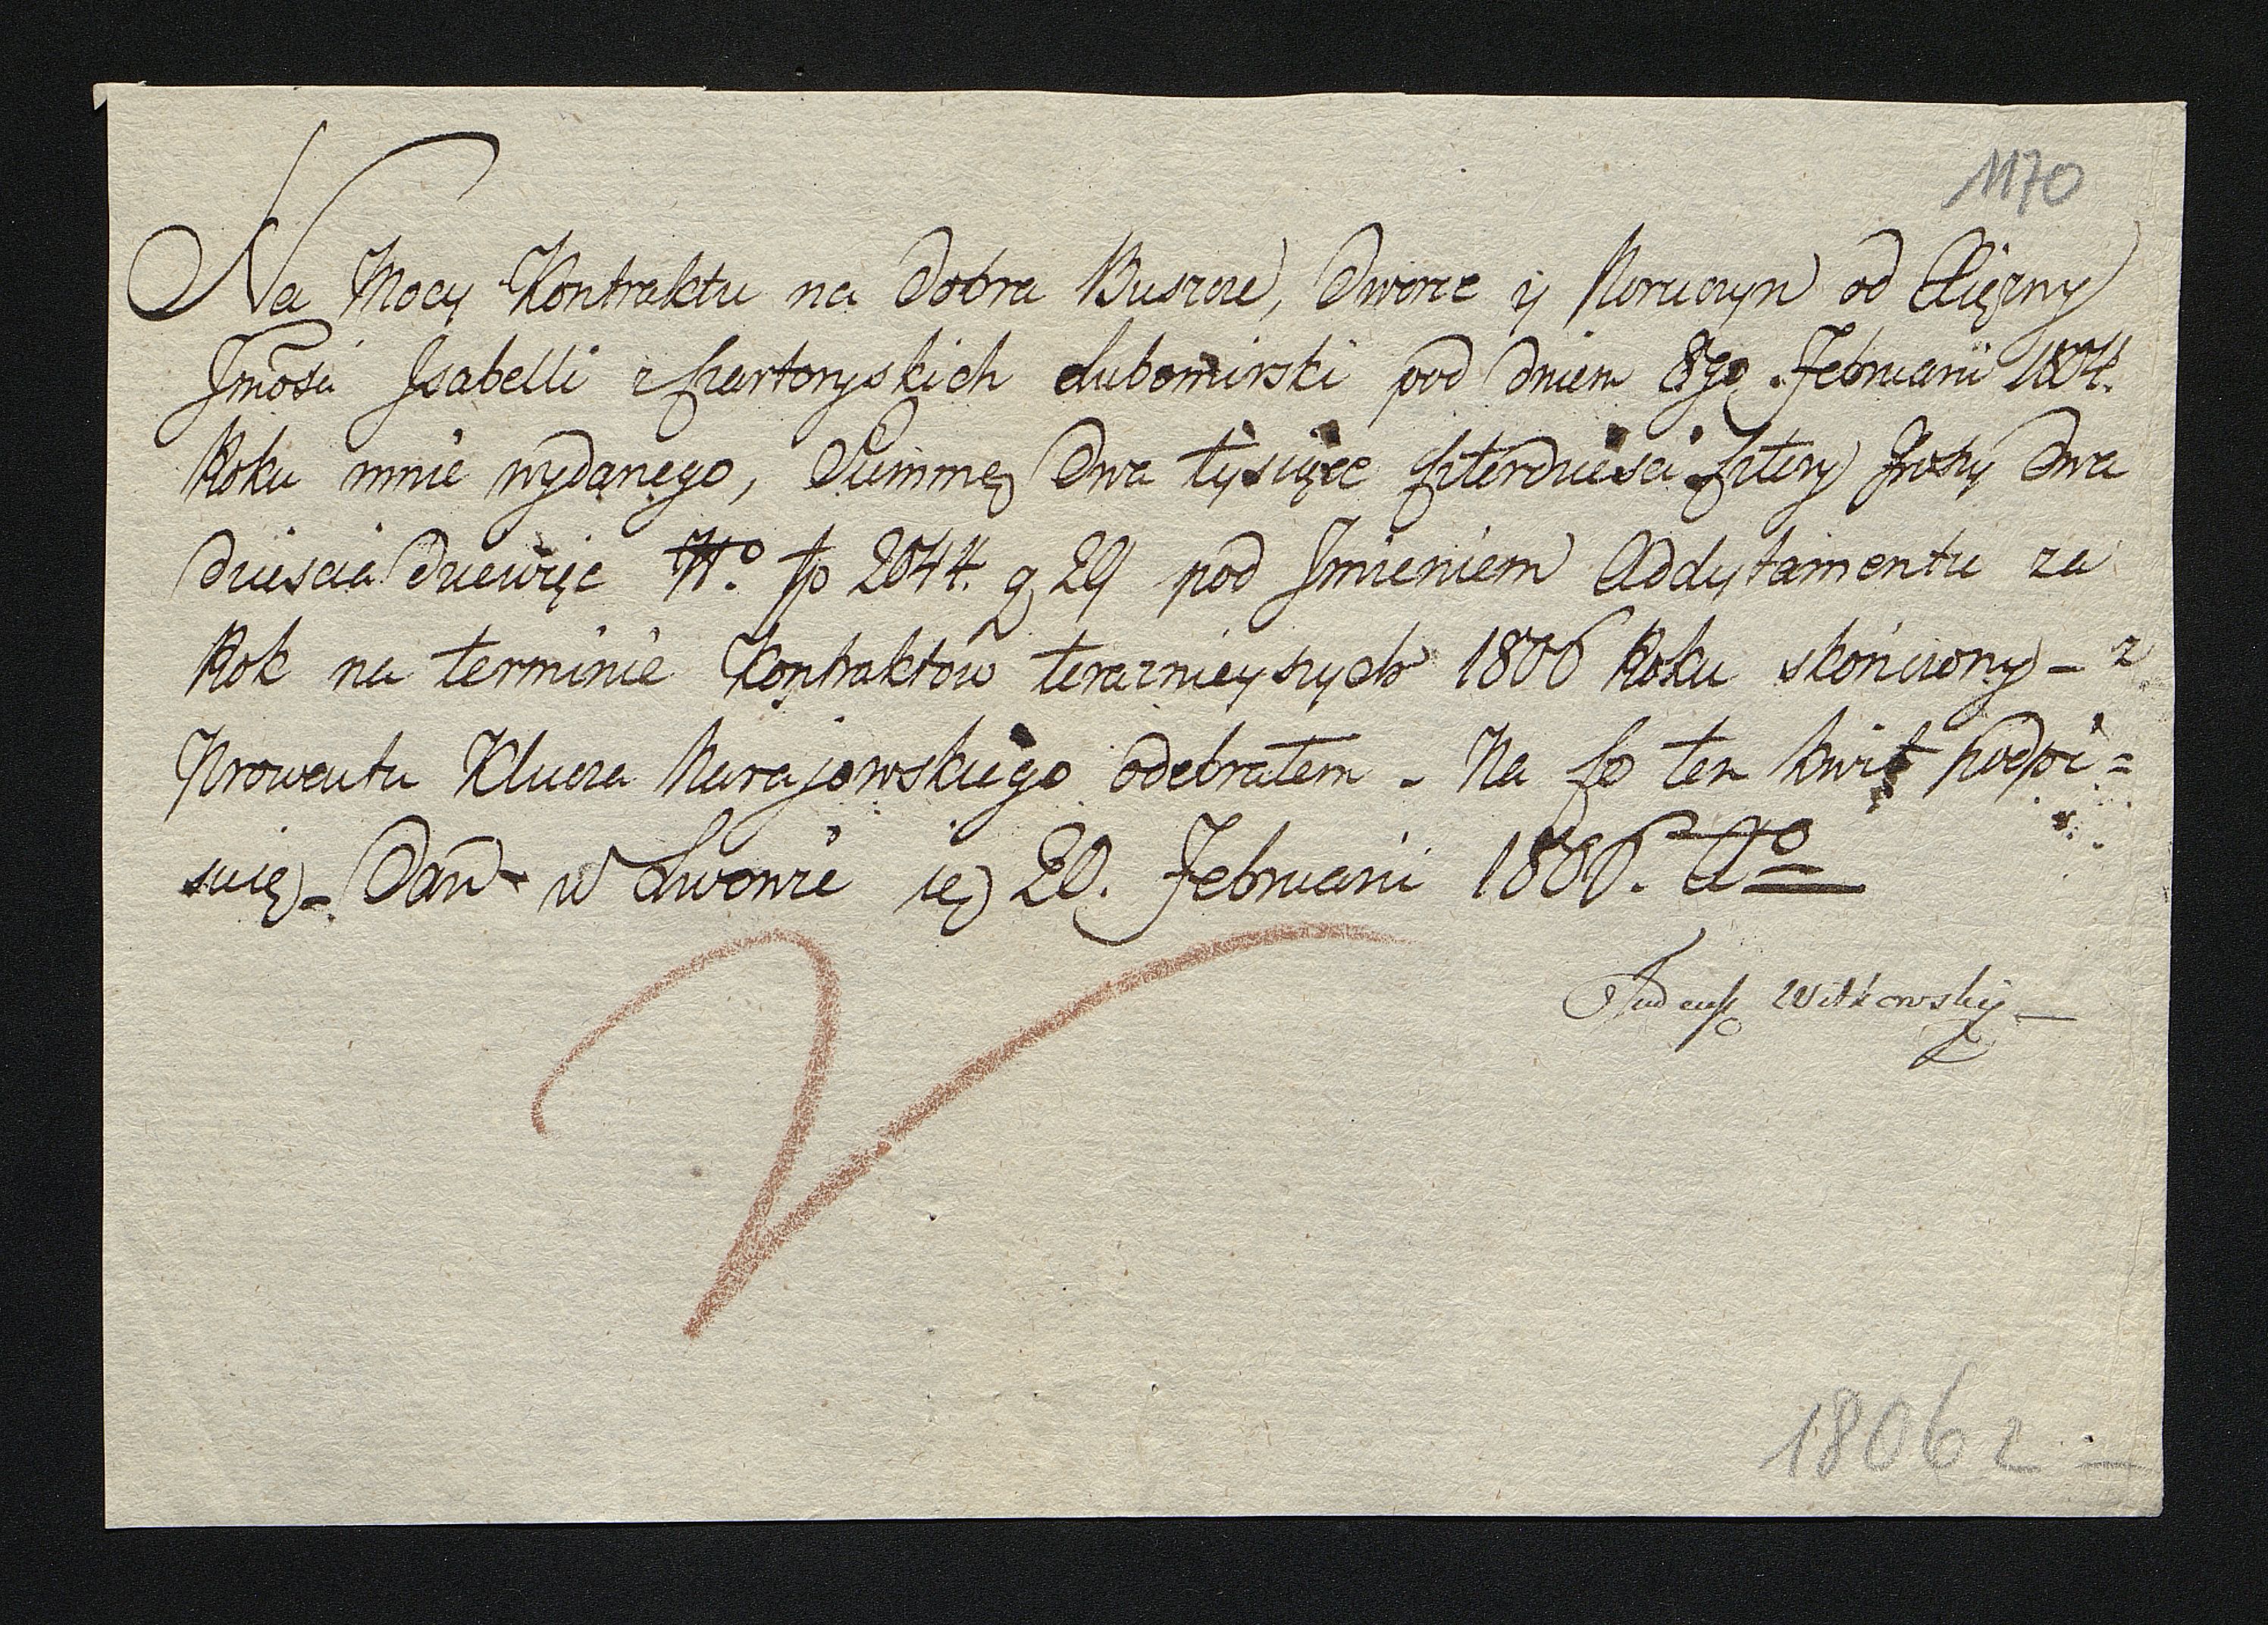 1170
Na Mocy Kontraktu na Dobra Buszcze, Dworce y Poruczyn od Xiężny
Jmości Isabelli z Czartoryskich Lubomirski pod dniem 8go Februarii 1804.
Roku mnie wydanego, Summę Dwa tysięce Czterdzieści Cztery Groszy Dwa
dzieścia dziewięć No fp 2044. g 29 pod Jmieniem Addytamentu za
Rok na terminie Kontraktów teraznieyszych 1806 Roku skończony - z
Prowentu Klucza Narajowskiego odebrałem - Na Co ten kwit podpi=
suię - Dan w Lwowie ię 20. Februarii 1806. Ao
Tadeusz Witkowski
1806 r